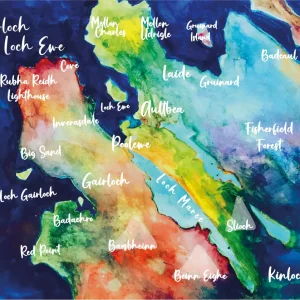 loch
Loch Ewe
Mellon
Charles
Mellon
Udrigle
Gruinard
Island
Badcaul
Cove
Rubha Reidh
Lighthouse
Laide
Gruinard
Loch Ewe
Aultbea
Inverasdale
Fisherfield
Forest
Poolewe
Big Sand
Gairloch
Loch Maree
Loch Gairloch
Badachro
Slioch
Red Point
Baosbheinn
Beinn Eighe
Kinloc